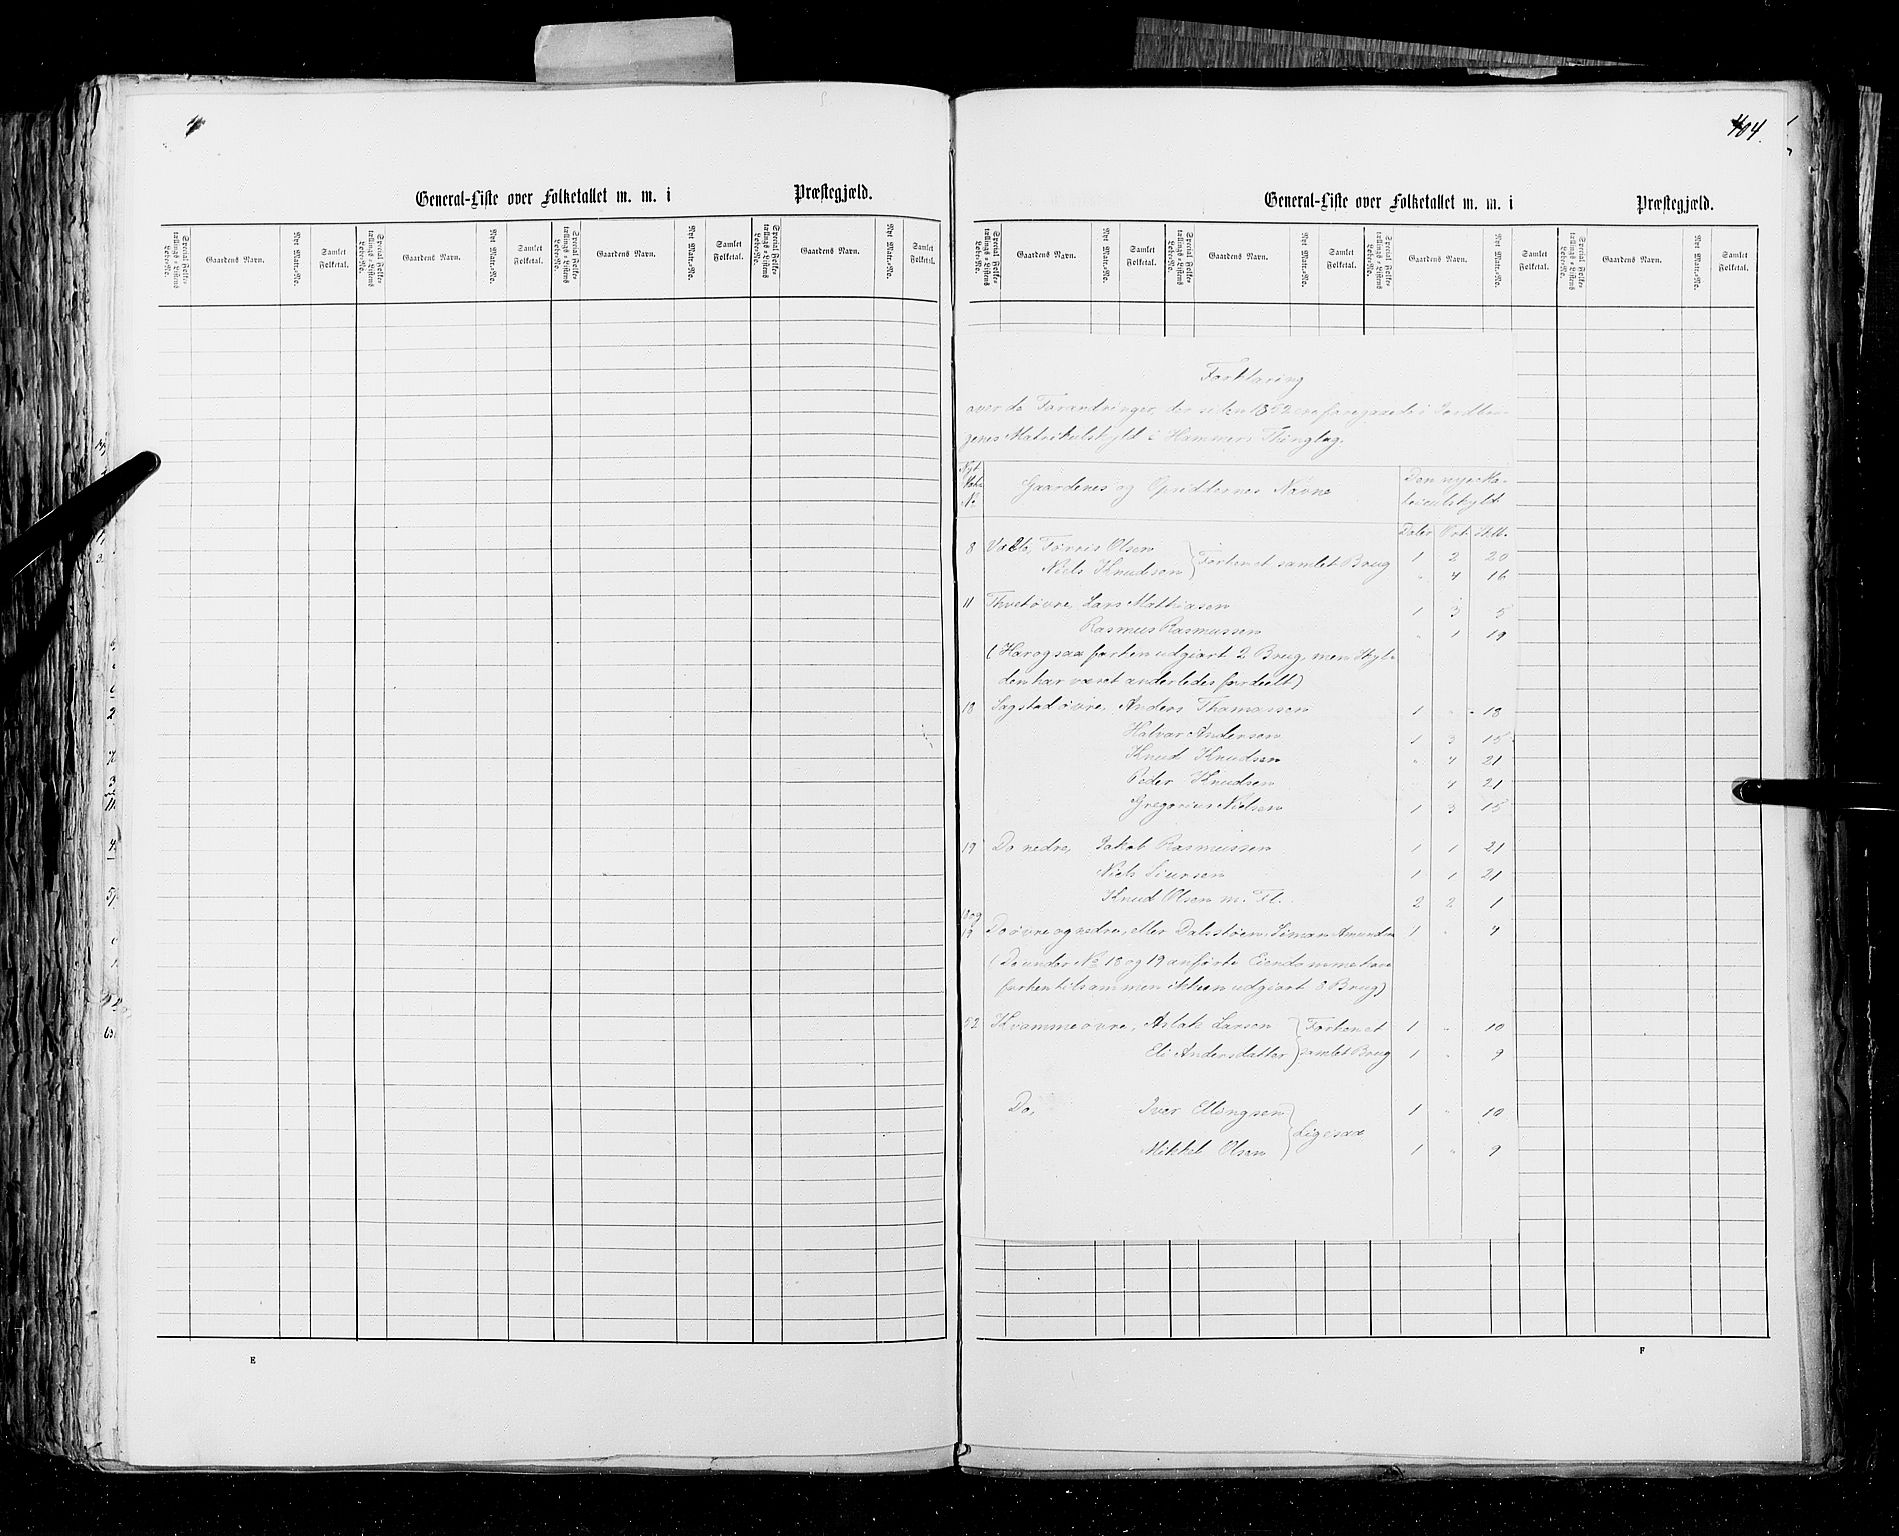 General-Liste over Folketallet m. m. i Præstegjæld.
Special Folke-
tællings-Listens
Løbe-No.
Gaardens Navn.
Nyt Matr.-No.
Samlet
Folketal.
Special Folke-
tællings-Listens
Løbe-No.
Gaardens Navn.
Nyt Matr.-No.
Samlet
Folketal.
Special Folke-
tællings-Listens
Løbe-No.
Gaardens Navn.
Nyt Matr.-No.
Samlet
Folketal.
Special Folke-
tællings-Listens
Løbe-No.
Gaardens Navn.
Nyt Matr.-No.
Samlet
Folketal.
E
404.
General-Liste over Folketallet m. m. i Præstegjæld.
Special Folke-
tællings-Listens
Løbe-No.
Gaardens Navn.
Nyt Matr.-No.
Samlet
Folketal.
Special Folke-
tællings-Listens
Løbe-No.
Gaardens Navn.
Nyt Matr.-No.
Samlet
Folketal.
Special Folke-
tællings-Listens
Løbe-No.
Gaardens Navn.
Nyt Matr.-No.
Samlet
Folketal.
Special Folke-
tællings-Listens
Løbe-No.
Gaardens Navn.
Nyt Matr.-No.
Samlet
Folketal.
Forklaring
over de Forandringer, der siden 1852 ere foregaaede i Jordlei-
genes Matrikulskyld i Hammers Thinglag.
Nyt
Matr.
No
Gaardenes og Opsiddernes Navne
Den nye Ma-
trikulskyld
Daler Ort Skill.
8 Tørris Olsen 1 2 20
Niels Knudsen } Forhen et samlet Brug " 4 16
11 Thvetøvre, Lars Mathiasen 1 3 5
Rasmus Rasmussen " 1 19
(Har ogsaa forhen udgjort 2 Brug, men Skyl-
den har været anderledes fordeelt)
18 Sagstad øvre, Anders Thomassen 1 " 18
Halvor Andersen 1 3 15
Knud Knudsen " 4 21
Peder Knudsen " 4 21
Gregorius Nielsen 1 3 15
19 Do nedre, Jakob Rasmussen 1 1 21
Niels Siursen 1 1 21
Knud Olsen m. Fl. 2 2 1
18 og
19 Do øvre og nedre, eller Dalsstøen, Simon Amundsen 1 " 4
(De under No 18 og 19 anførte Eiendomme have
forhen tilsammen ikkun udgjort 8 Brug)
52 Kvamme øvre, Aslak Larsen } Forhen et 1 " 10
Eli Andersdatter } samlet Brug 1 " 9
Do, Iver Ellingsen 1 " 10
} Ligesaa
Mikkel Olsen 1 " 9
F